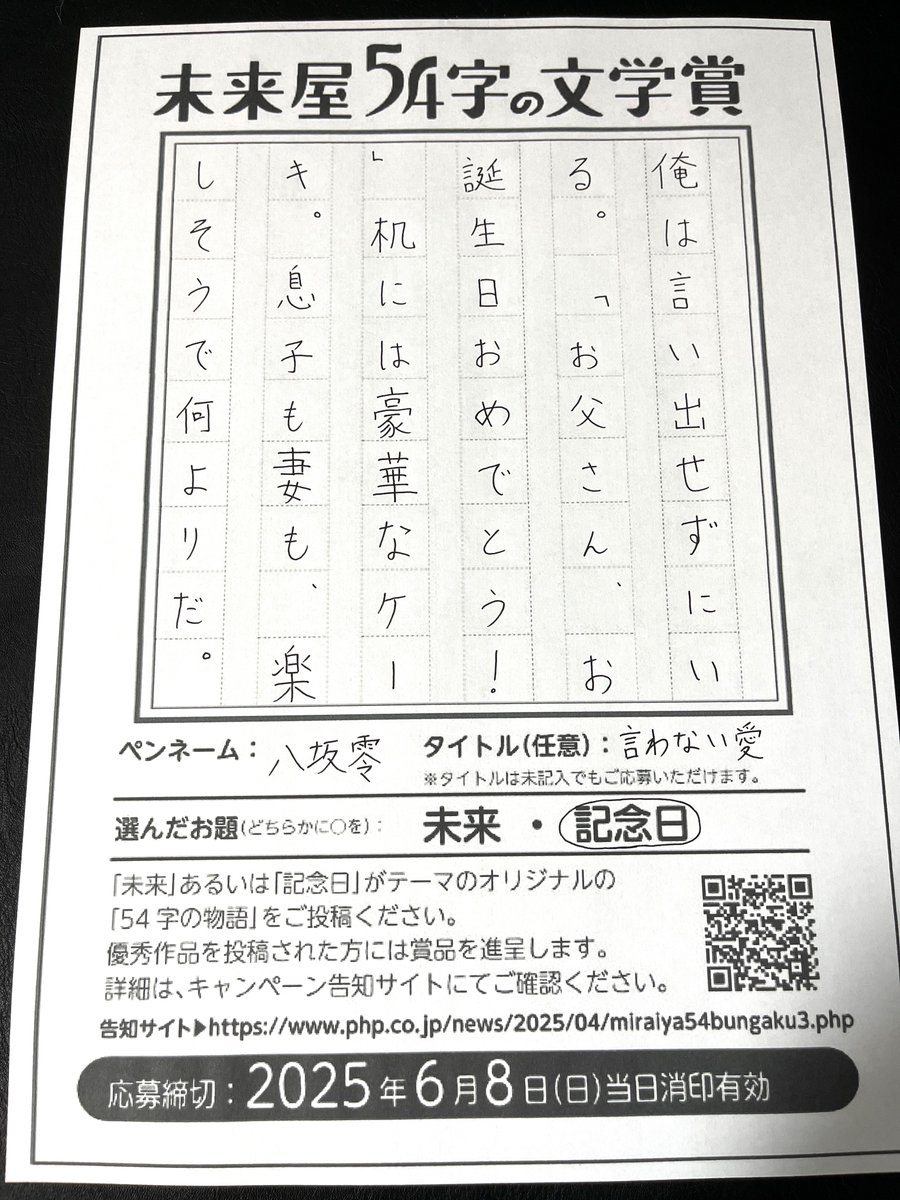 未来屋54字の文学賞
俺は言い出せずにい
る。「お父さん、お
誕生日おめでとう!
」机には豪華なケー
キ。息子も妻も、楽
しそうで何よりだ。
ペンネーム:八坂零 タイトル(任意):言わない愛
※タイトルは未記入でもご応募いただけます。
選んだお題(どちらかに○を): 未来・記念日
「未来」あるいは「記念日」がテーマのオリジナルの
「54字の物語」をご投稿ください。
優秀作品を投稿された方には賞品を進呈します。
詳細は、キャンペーン告知サイトにてご確認ください。
告知サイト▶https://www.php.co.jp/news/2025/04/miraiya54bungaku3.php
応募締切:2025年6月8日(日)当日消印有効